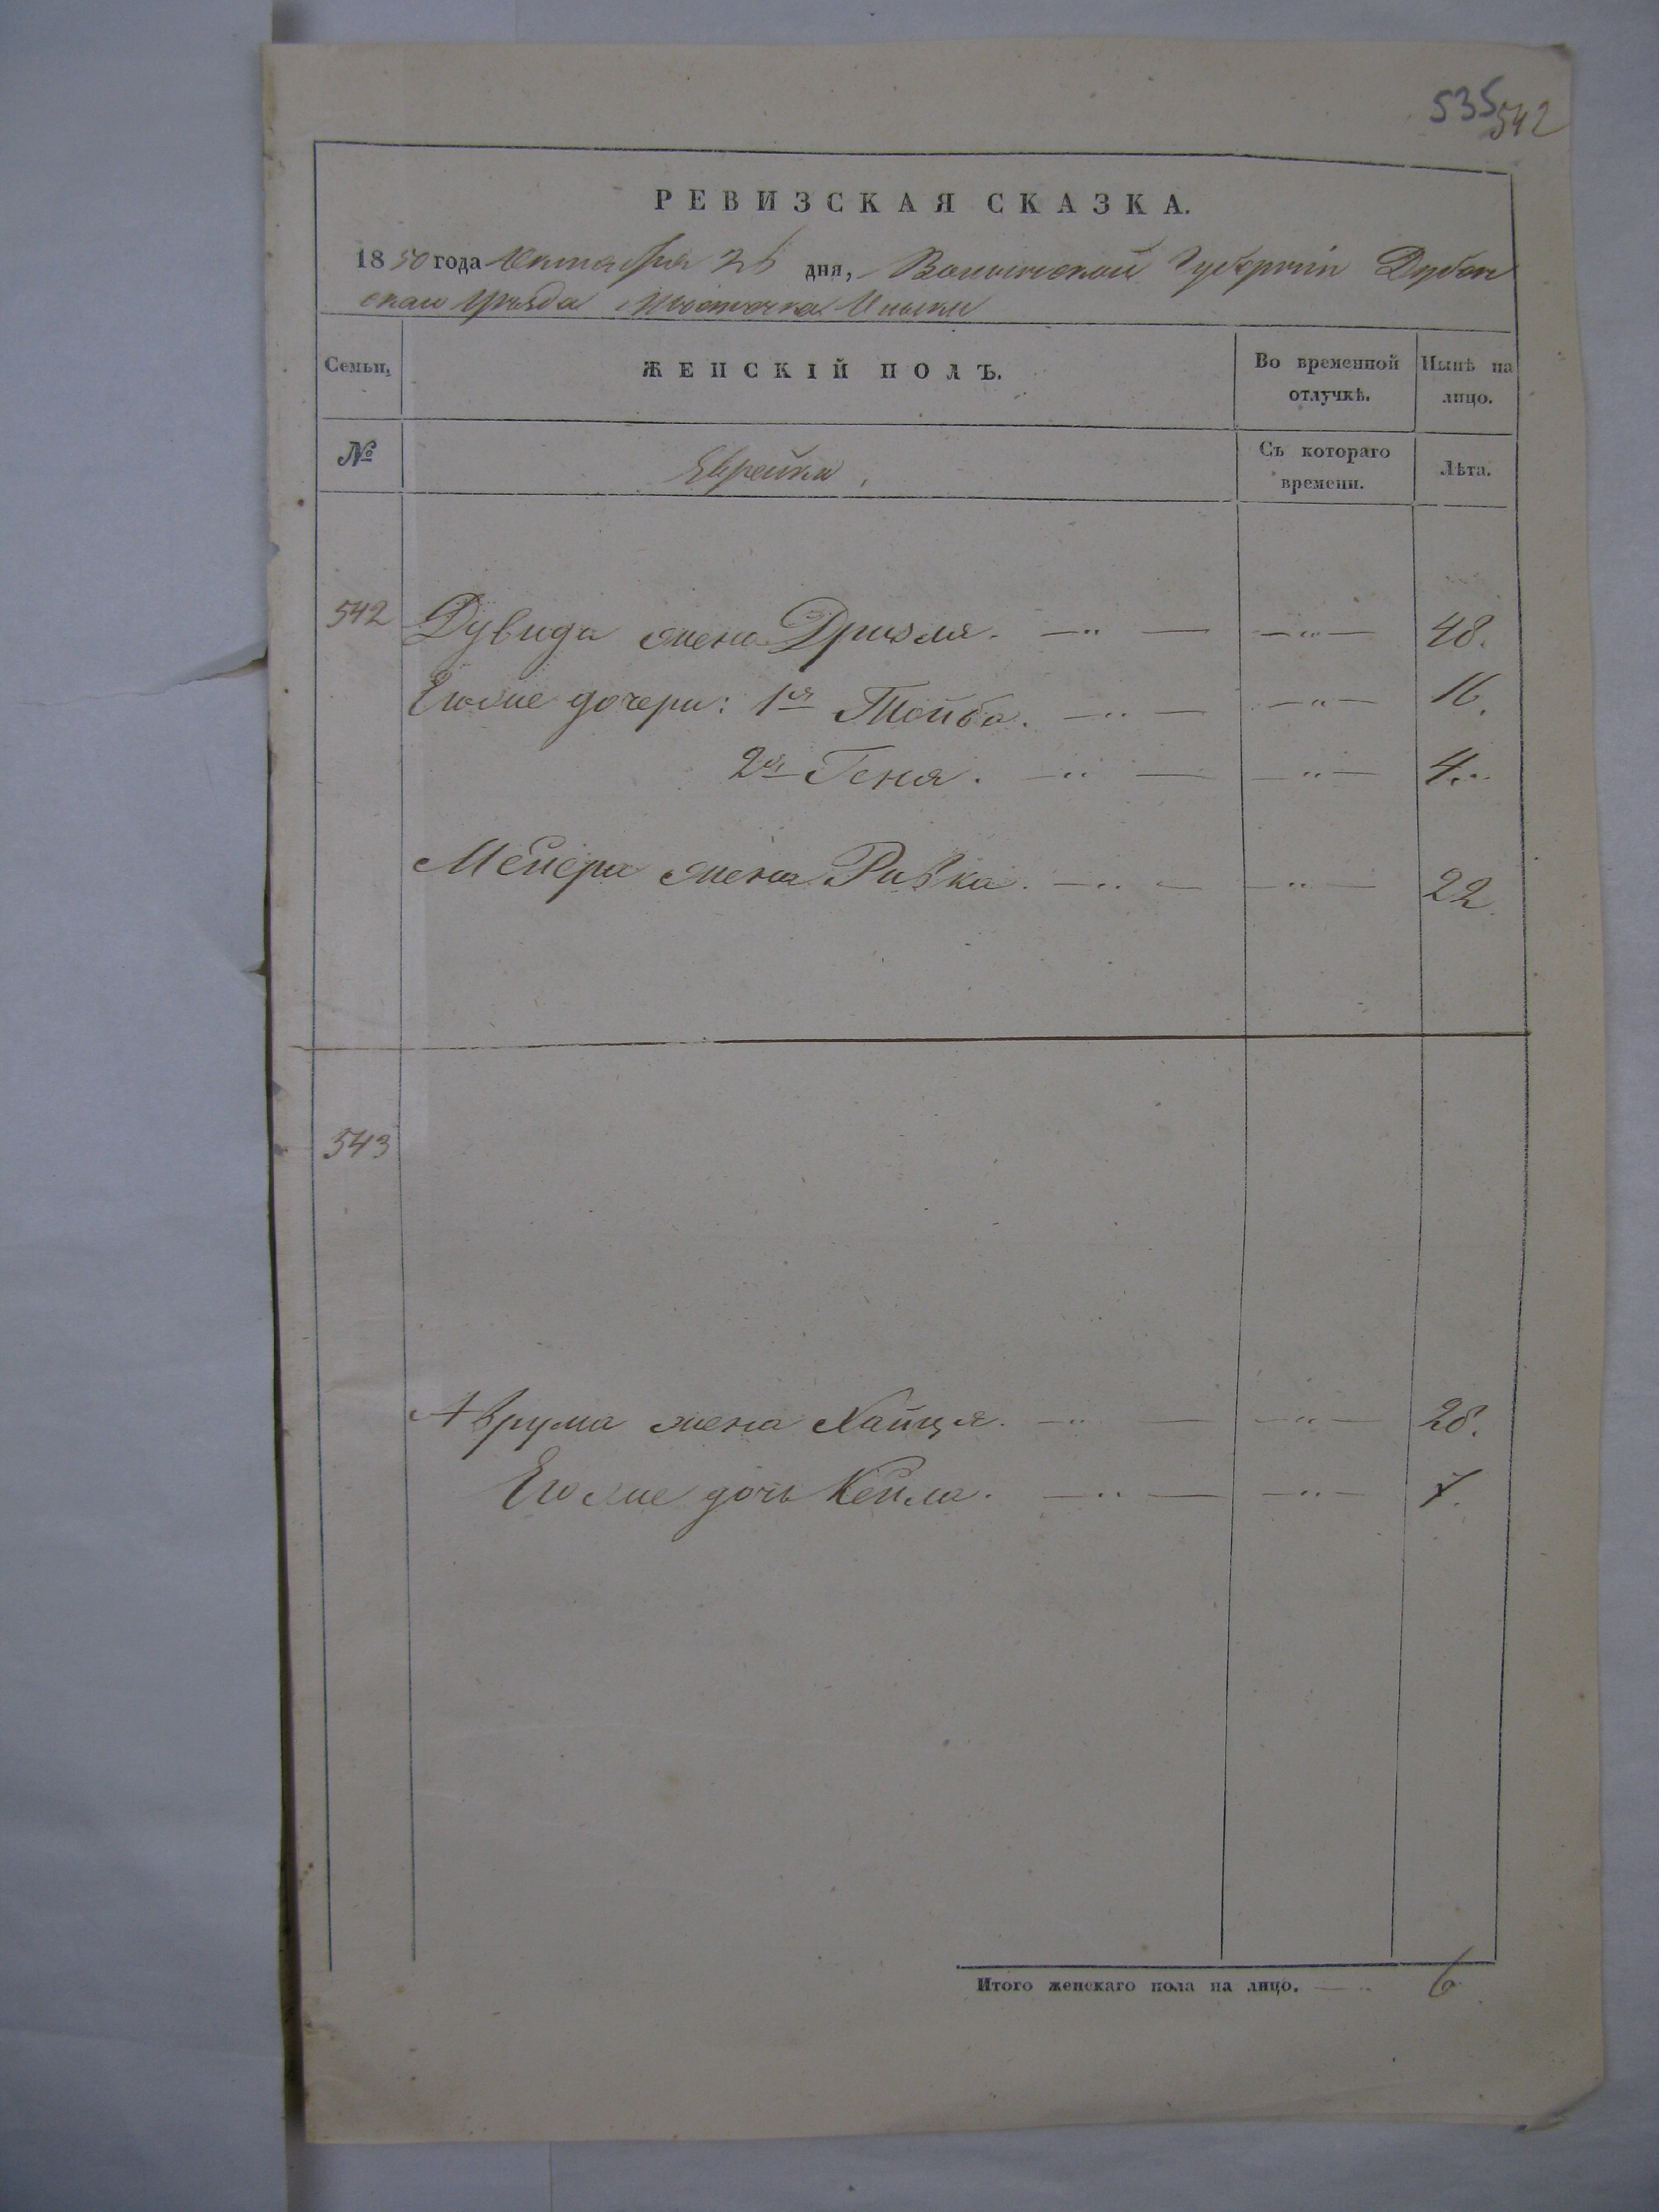 535 542
РЕВИЗСКАЯ СКАЗКА.
1850 года Октября 26 дня, Волынской Губернiи Дубен
скаго Уѣзда Мѣстечка
Семьи, ЖЕНСКIЙ ПОЛЪ. Во временной отлучкѣ. Нынѣ на лицо.
№ Еврейки. Съ котораго времени. Лѣта.
542 Дувида жена Дризля. — " — — " — 48.
Его же дочери: 1я Тойба. — " — — " — 16.
2я Геня. — " — — " — 4.
Мейера жена Ривка. — " — — " — 22.
543
Аврума жена Хайця. — " — — " — 28.
Его же дочь Кейла. — " — — " — 7.
Итого женскаго пола на лицо. — " 6